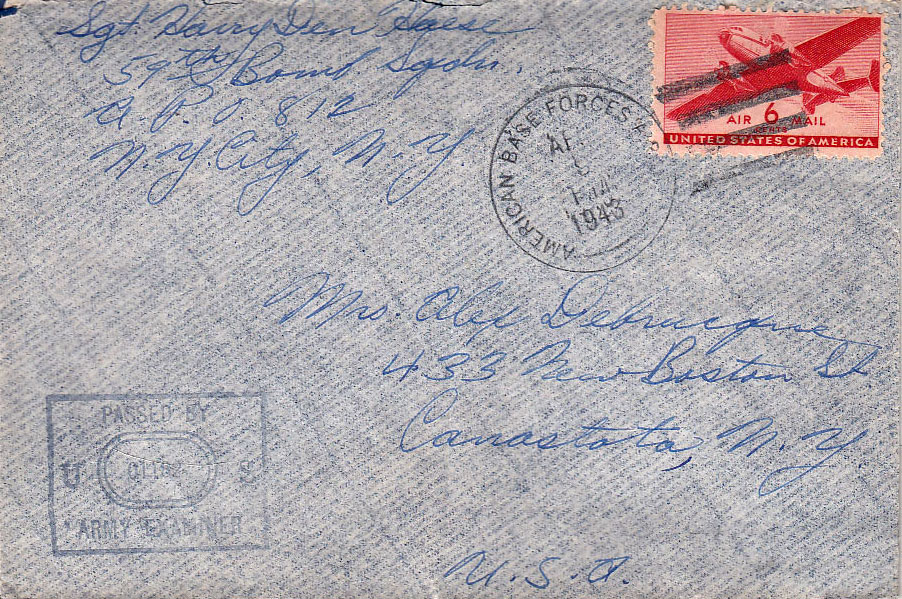 Sgt. Harry Den Haese
59th Bomb Sqdn.
A. P. O 812
N. Y. City, N. Y.
AMERICAN BASE FORCES
1943
AIR 6 MAIL
CENTS
UNITED STATES OF AMERICA
Mrs. Alex Debrucque
433 New Boston St
Canastota, N. Y
U. S. A.
PASSED BY
U S
ARMY EXAMINER